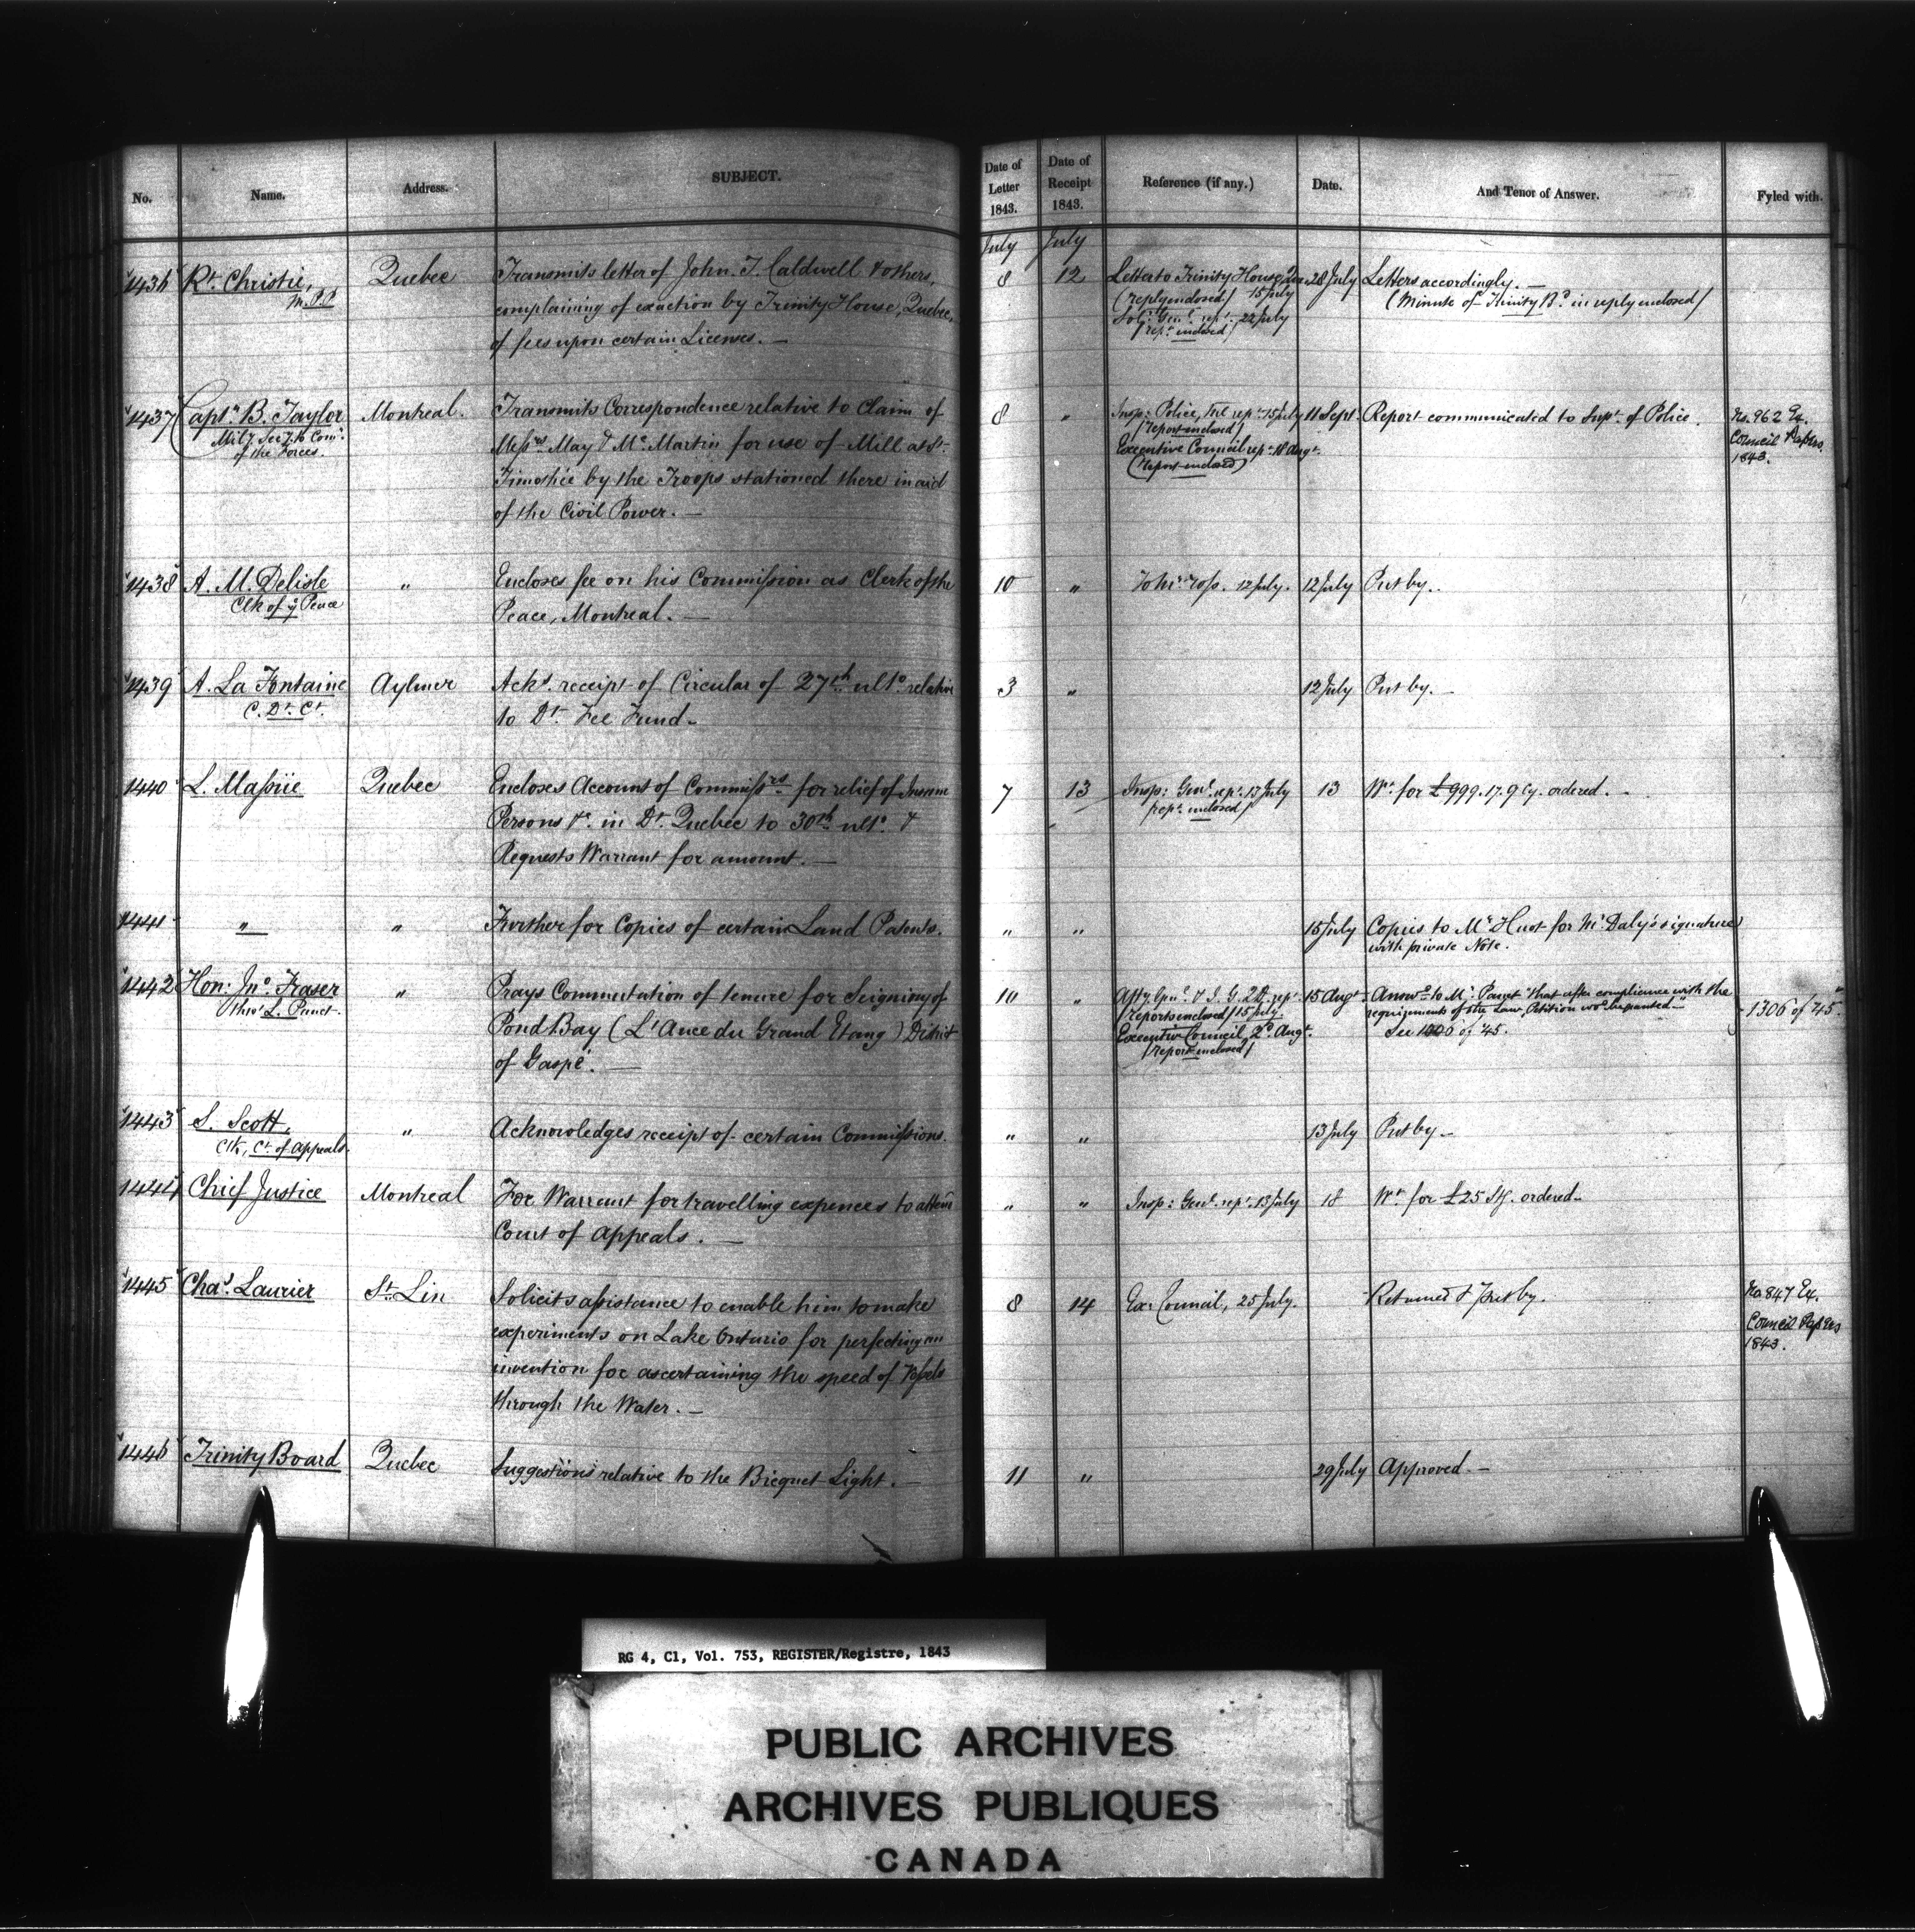 No.
Name.
Address.
SUBJECT.
Date of Letter 1843.
Date of Receipt 1843.
Reference (if any.)
Date.
And Tenor of Answer.
Fyled with.
July July
1436 Rt. Christie, Quebec Transmits letter of John. T. Caldwell & others,
M.P.P. complaining of exaction by Trinity House, Quebec,
of fees upon certain Licenses. —
8 12 Letter to Trinity House, 28 July Letters accordingly. —
(reply enclosed) 15 July (Minute of Trinity Bd. in reply enclosed)
Solr. Genl. rept. 22 July
(rept. enclosed)
1437 Captn. B. Taylor Montreal. Transmits Correspondence relative to Claim of
Mily. Secy. to Comr. Messrs. May & McMartin for use of Mill at St.
of the Forces. Timothée by the Troops stationed there in aid
of the Civil Power. —
8 " Insp: Police, rept. 15 July 11 Sept. Report communicated to Supt. of Police. No. 962 Ex.
(report enclosed) Council Papers
Executive Council rept. 18 Augt. 1843.
(report enclosed)
1438 A. M. Delisle " Encloses fee on his Commission as Clerk of the
Clk of ye Peace Peace, Montreal. —
10 " 12 July. 12 July Put by.
1439 A. La Fontaine Aylmer Ackd. receipt of Circular of 27th. ulto. relative
C. Dt. Ct. to Dt. Fee Fund —
3 " 12 July Put by. —
1440 L. Massüe Quebec Encloses Account of Commissrs. for relief of Insane
Persons &c. in Dt. Quebec to 30th. ulto. &
Requests Warrant for amount. —
7 13 Insp: Genl. rept. 13 July 13 Wt. for £999.17.9 Cy. ordered. —
(rept. enclosed)
1441 " " Further for Copies of certain Land Patents.
" " 15 July Copies to Mr. Huot for Mr. Daly's signature
with private Note.
1442 Hon: Jno. Fraser " Prays Commutation of tenure for Seigniory of
thro' L. Panet. Pond Bay (L'Ance du Grand Etang) District
of Gaspé. —
10 " Atty. Genl. & I. G. rept. 15 Augt. Answd. to Mr. Panet "that after compliance with the
(reports enclosed) 15 July. requirements of the Law, Petition wod. be granted."
Executive Council, 2d. Augt. See 1306 of '45. 1306 of '45.
(report enclosed)
1443 S. Scott, " Acknowledges receipt of certain Commissions.
Clk, Ct. of Appeals.
" " 13 July Put by —
1444 Chief Justice Montreal For Warrant for travelling expences to attend
Court of Appeals. —
" " Insp: Genl. rept. 13 July 18 Wt. for £25 Stg. ordered —
1445 Chas. Laurier St. Lin Solicits assistance to enable him to make
experiments on Lake Ontario for perfecting an
invention for ascertaining the speed of Vessels
through the Water. —
8 14 Ex: Council, 25 July. Returned & put by. No 847 Ex.
Council Papers
1843.
1446 Trinity Board Quebec Suggestions relative to the Bicquet Light. —
11 " 29 July Approved. —
RG 4, C1, Vol. 753, REGISTER/Registre, 1843
PUBLIC ARCHIVES
ARCHIVES PUBLIQUES
CANADA